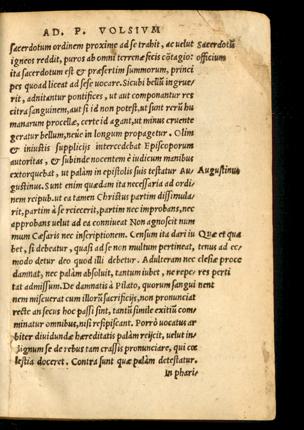 AD. P. VOLSIVM
sacerdotum ordinem proxime ad se trahit, ac uelut Sacerdotũ
igneos reddit, puros ab omni terrenæ fecis cōtagio: officium
ita sacerdotum est & præsertim summorum, princi
pes quoad liceat ad sese uocare. Sicubi bellũ ingrue/
rit, adnitantur pontifices, ut aut componantur res
citra sanguinem, aut si id non potest, ut sunt rerũ hu
manarum procellæ, certe id agant, ut minus cruente
geratur bellum, neue in longum propagetur. Olim
& iniustis supplicijs intercedebat Episcoporum
autoritas, & subinde nocentem è iudicum manibus
extorquebat, ut palàm in epistolis suis testatur Au/ Augustinus
gustinus. Sunt enim quædam ita necessaria ad ordi/
nem reipub. ut ea tamen Christus partim dissimula/
rit, partim à se reiecerit, partim nec improbans, nec
approbans uelut ad ea conniueat Non agnoscit num
mum Cæsaris nec inscriptionem. Censum ita dari iu Quæ et qua
bet, si debeatur, quasi ad se non multum pertineat, tenus ad ec/
modo detur deo quod illi debetur. Adulteram nec clesiæ proce
damnat, nec palàm absoluit, tantum iubet, ne repe/ res perti
tat admissum. De damnatis à Pilato, quorum sangui nent
nem miscuerat cum illorũ sacrificijs, non pronunciat
recte an secus hoc passi sint, tantũ simile exitiũ com/
minatur omnibus, nisi resipiscant. Porrò uocatus ar/
biter diuidundæ hæreditatis palàm reijcit, uelut in/
dignum se de rebus tam crassis pronunciare, qui cœ
lestia doceret. Contra sunt quæ palàm detestatur.
in phari/